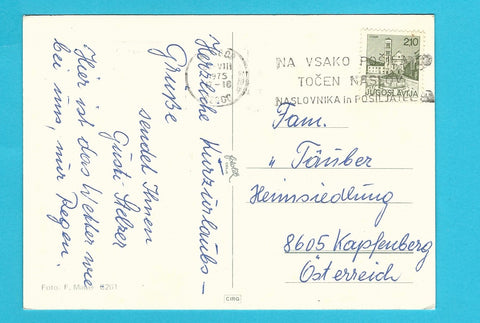 Herzliche Kurzurlaubs-
Grüße
sendet Ihnen
Gusti Stelzer
Hier ist das Wetter wie
bei uns, nur Regen.
Foto: F. 8261
CIRG
VIII
1975
NA VSAKO POŠILJKO
TOČEN NASLOV
NASLOVNIKA in POŠILJATELJA
2.10
JUGOSLAVIJA
Fam.
" Täuber
Heimsiedlung
8605 Kapfenberg
Österreich